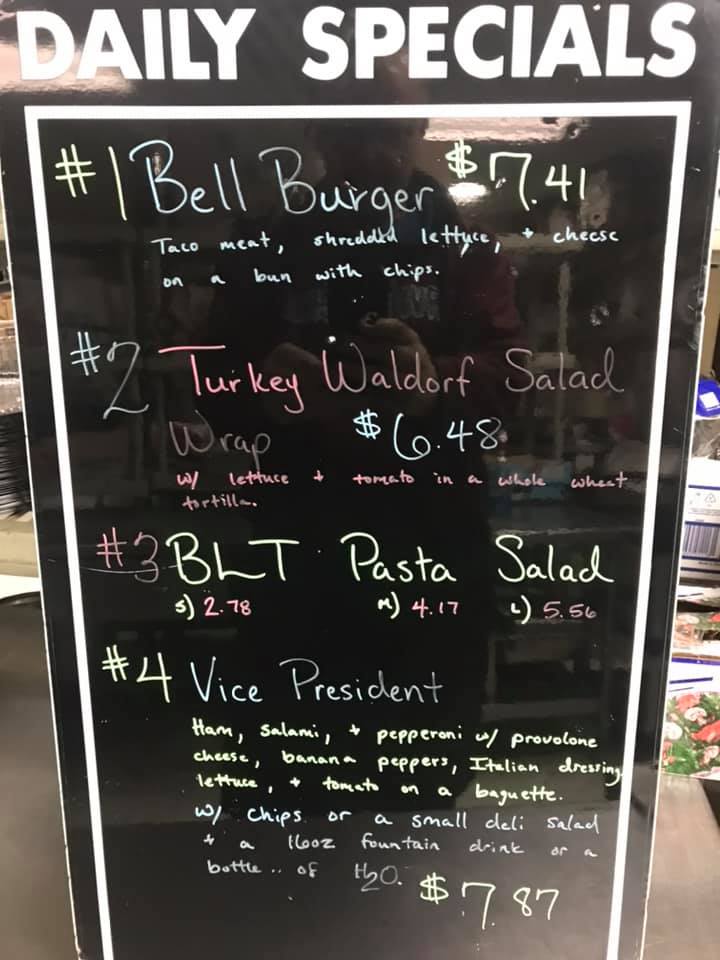 DAILY SPECIALS
#1 Bell Burger $7.41
Taco meat, shredded lettuce, + cheese
on a bun with chips.
#2 Turkey Waldorf Salad
Wrap $6.48
w/ lettuce + tomato in a whole wheat
tortilla.
#3 BLT Pasta Salad
s) 2.78 M) 4.17 L) 5.56
#4 Vice President
Ham, salami, + pepperoni w/ provolone
cheese, banana peppers, Italian dressing,
lettuce, + tomato on a baguette.
w/ chips or a small deli salad
+ a 16oz fountain drink or a
bottle.. of H2O. $7.87